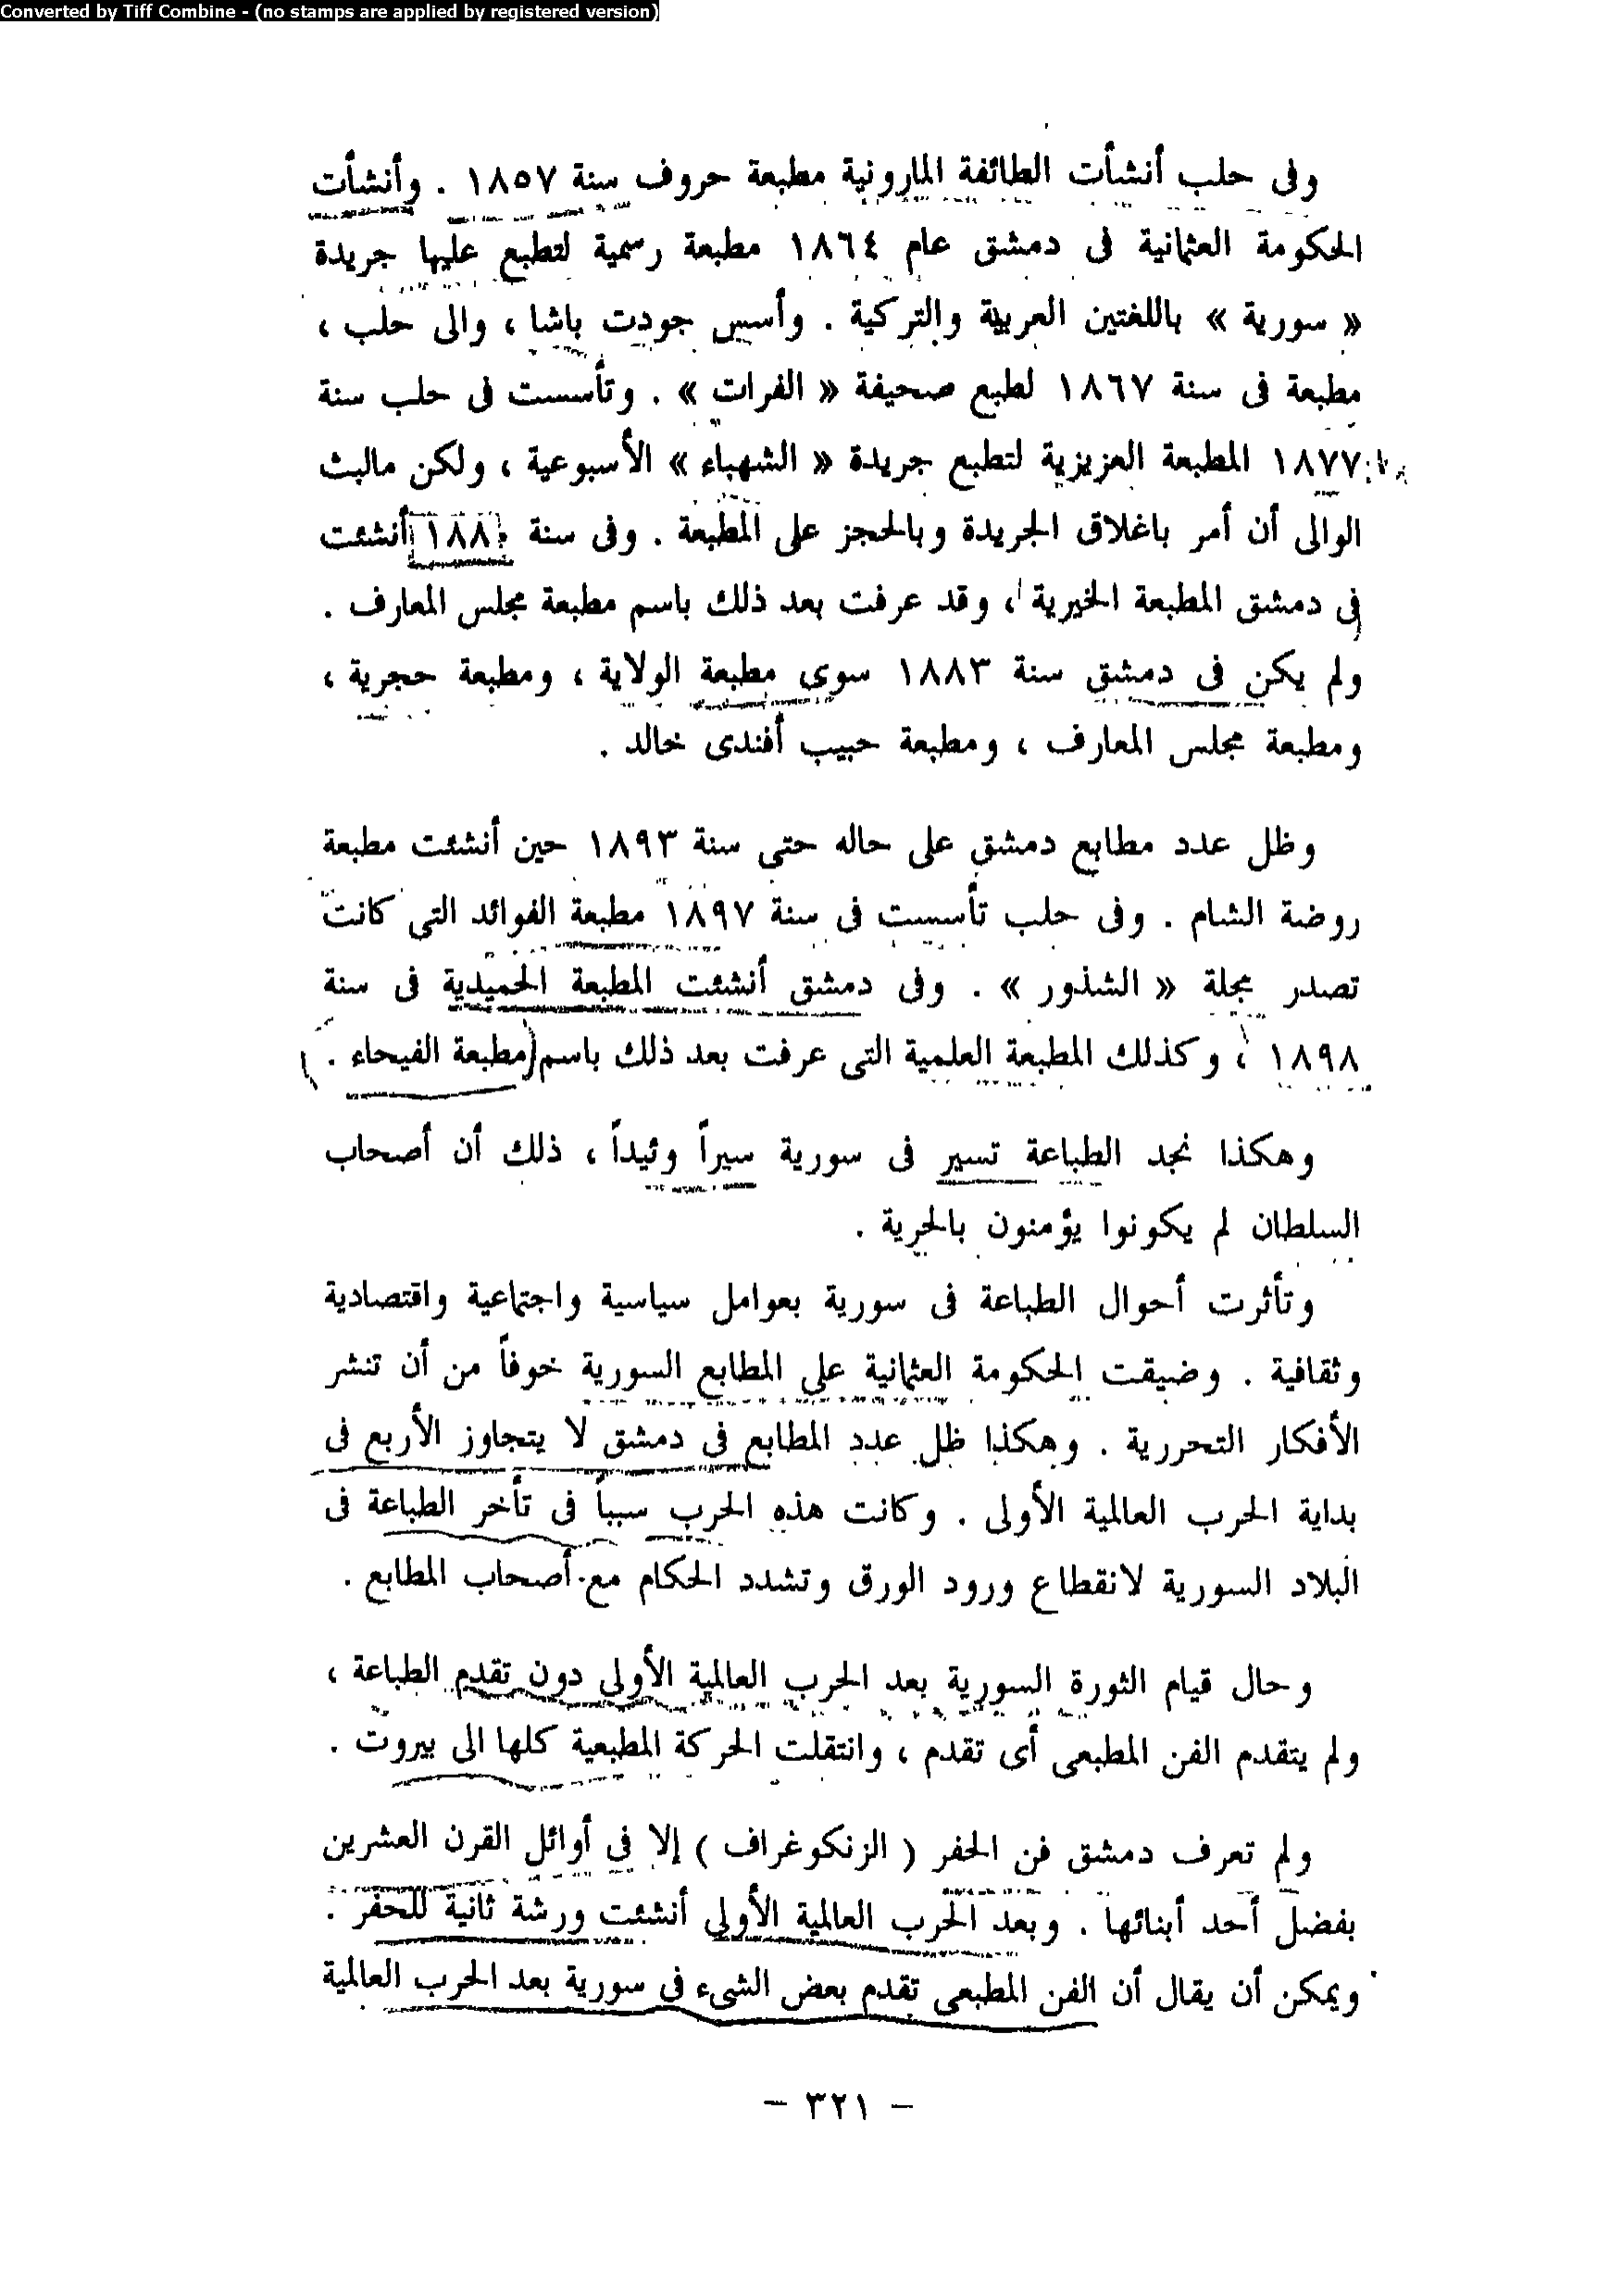 Converted by Tiff Combine - (no stamps are applied by registered version)
وفى حلب أنشأت الطائفة المارونية مطبعة حروف سنة ١٨٥٧ . وأنشأت
الحكومة العثمانية فى دمشق عام ١٨٦٤ مطبعة رسمية لتطبع عليها جريدة
« سورية » باللغتين العربية والتركية . وأسس جودت باشا ، والى حلب ،
مطبعة فى سنة ١٨٦٧ لطبع صحيفة « الفرات » . وتأسست فى حلب سنة
١٨٧٧ المطبعة العزيزية لتطبع جريدة « الشهباء » الأسبوعية ، ولكن مالبث
الوالى أن أمر باغلاق الجريدة وبالحجز على المطبعة . وفى سنة ١٨٨٠ أنشئت
فى دمشق المطبعة الخيرية ، وقد عرفت بعد ذلك باسم مطبعة مجلس المعارف .
ولم يكن فى دمشق سنة ١٨٨٣ سوى مطبعة الولاية ، ومطبعة حجرية ،
ومطبعة مجلس المعارف ، ومطبعة حبيب أفندى خالد .
وظل عدد مطابع دمشق على حاله حتى سنة ١٨٩٣ حين أنشئت مطبعة
روضة الشام . وفى حلب تأسست فى سنة ١٨٩٧ مطبعة الفوائد التى كانت
تصدر مجلة « الشذور » . وفى دمشق أنشئت المطبعة الحميدية فى سنة
١٨٩٨ ، وكذلك المطبعة العلمية التى عرفت بعد ذلك باسم مطبعة الفيحاء .
وهكذا نجد الطباعة تسير فى سورية سيراً وئيداً ، ذلك أن أصحاب
السلطان لم يكونوا يؤمنون بالحرية .
وتأثرت أحوال الطباعة فى سورية بعوامل سياسية واجتماعية واقتصادية
وثقافية . وضيقت الحكومة العثمانية على المطابع السورية خوفاً من أن تنشر
الأفكار التحررية . وهكذا ظل عدد المطابع فى دمشق لا يتجاوز الأربع فى
بداية الحرب العالمية الأولى . وكانت هذه الحرب سبباً فى تأخر الطباعة فى
البلاد السورية لانقطاع ورود الورق وتشدد الحكام مع أصحاب المطابع .
وحال قيام الثورة السورية بعد الحرب العالمية الأولى دون تقدم الطباعة ،
ولم يتقدم الفن المطبعى أى تقدم ، وانتقلت الحركة المطبعية كلها الى بيروت .
ولم تعرف دمشق فن الحفر ( الزنكوغراف ) إلا فى أوائل القرن العشرين
بفضل أحد أبنائها . وبعد الحرب العالمية الأولى أنشئت ورشة ثانية للحفر .
ويمكن أن يقال أن الفن المطبعى تقدم بعض الشىء فى سورية بعد الحرب العالمية
– ٣٢١ –